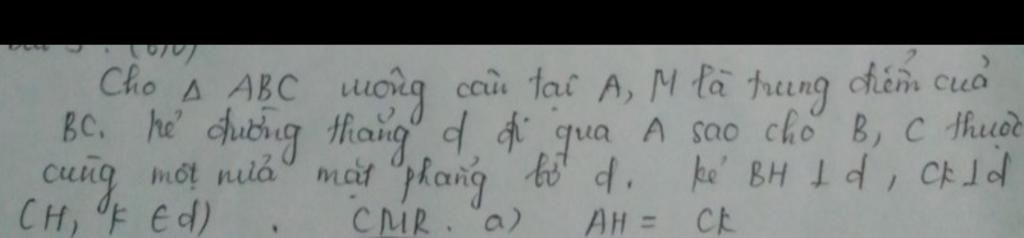 Cho Δ ABC vuông cân tại A, M là trung điểm của
BC. kẻ đường thẳng d đi qua A sao cho B, C thuộc
cùng một nửa mặt phẳng bờ d. kẻ BH ⊥ d, CK ⊥ d
(H, K ∈ d). CMR. a) AH = CK